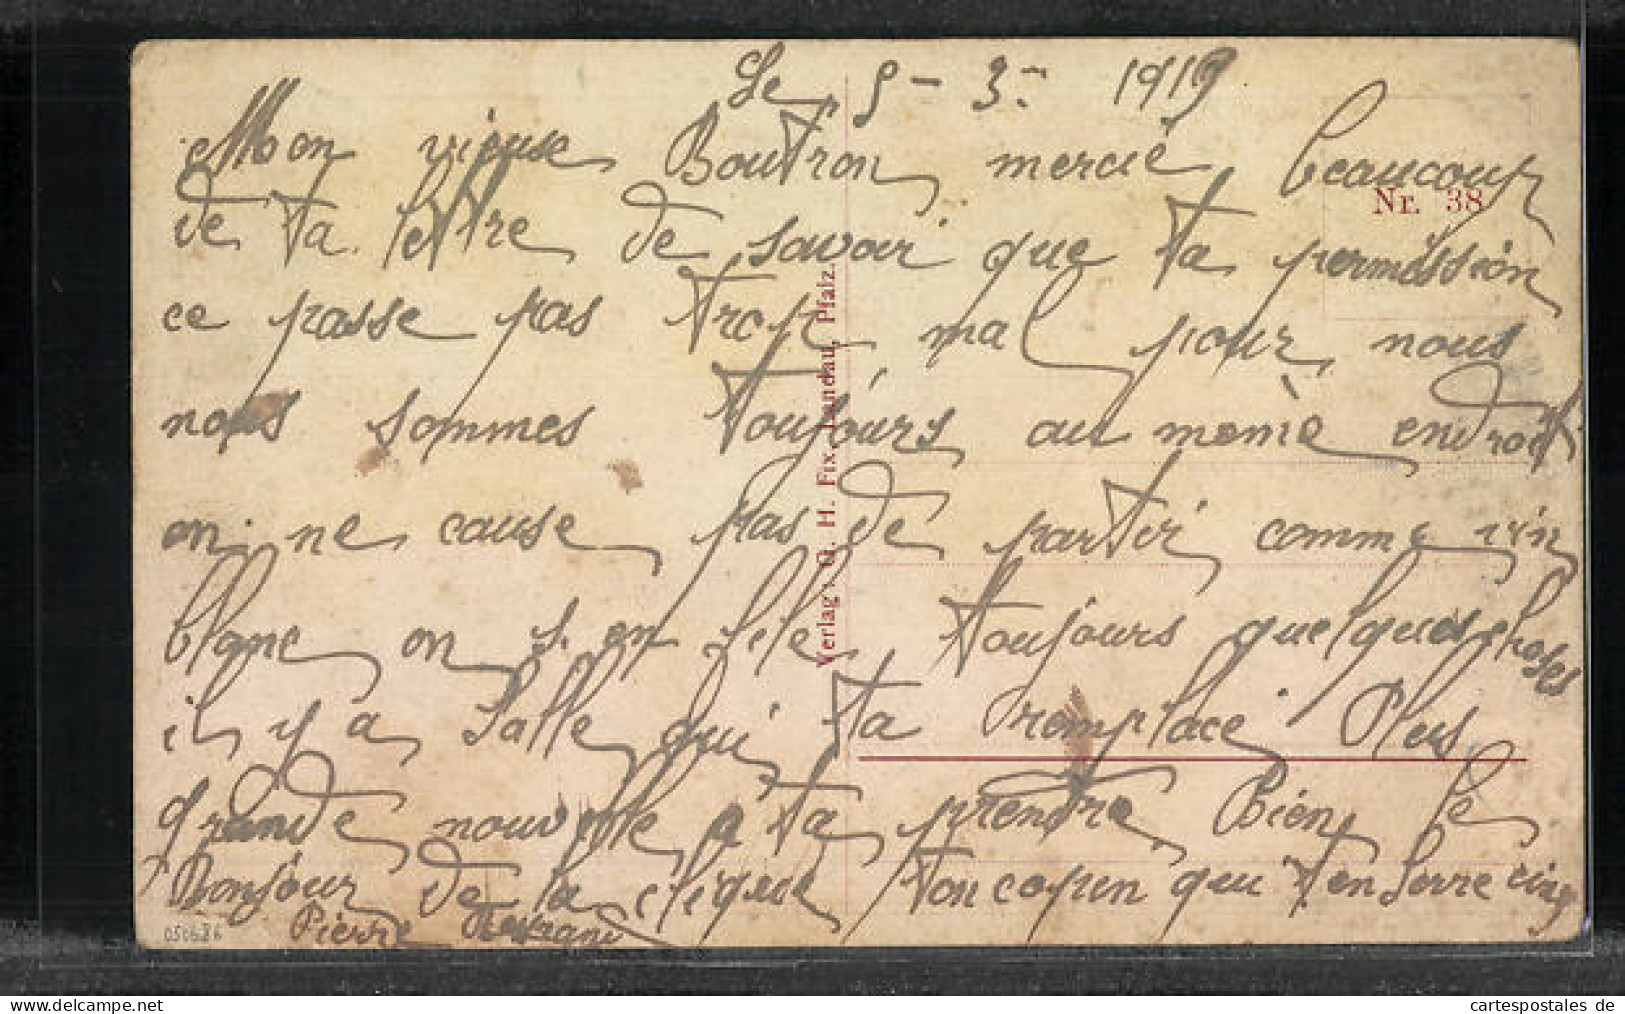 Le 5 - 3 - 1919
Mon vieux Boutron mercie beaucoup
de ta lettre de savoir que ta permission
ce passe pas trop mal pour nous
nous sommes toujours au meme endroit
on ne cause pas de partir comme vin
blanc on s'en file toujours quelques choses
il y a Salle qui ta remplacé Plus
grande nouvelle a ta prendre Bien le
Bonjour de la clique ton copin qui t'en serre cinq
Pierre
Nr. 38
Verlag: G. H. Fix, Landau, Pfalz.
050626
cartespostales de